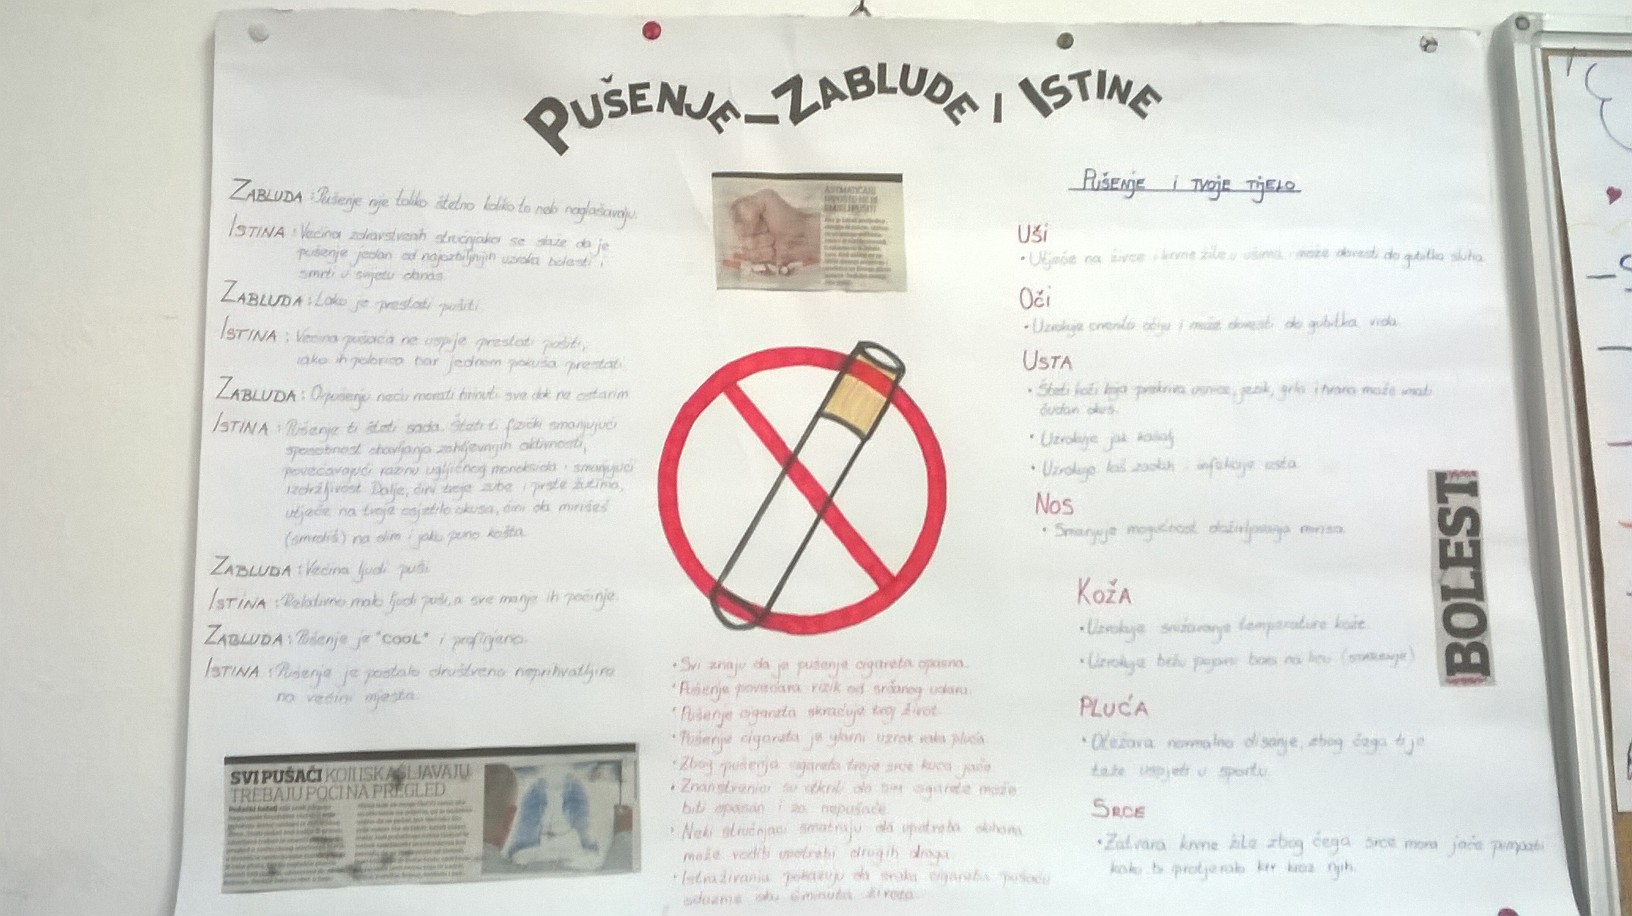 PUŠENJE – ZABLUDE I ISTINE
ZABLUDA: Pušenje nije toliko štetno koliko to neki naglašavaju.
ISTINA: Većina zdravstvenih stručnjaka se slaže da je
pušenje jedan od najozbiljnijih uzroka bolesti i
smrti u svijetu danas
ZABLUDA: Lako je prestati pušiti
ISTINA: Većina pušača ne uspije prestati pušiti,
iako ih polovica bar jednom pokuša prestati.
ZABLUDA: O pušenju neću morati brinuti sve dok ne ostarim
ISTINA: Pušenje ti šteti sada. Šteti ti fizički smanjujući
sposobnost obavljanja zahtjevnijih aktivnosti,
povećavajući razinu ugljičnog monoksida i smanjujući
izdržljivost. Dalje, čini tvoje zube i prste žutima,
utječe na tvoje osjetilo okusa, čini da mirišeš
(smrdiš) na dim i jako puno košta.
ZABLUDA: Većina ljudi puši
ISTINA: Relativno malo ljudi puši, a sve manje ih počinje.
ZABLUDA: Pušenje je "COOL" i profinjeno.
ISTINA: Pušenje je postalo društveno neprihvatljivo
na većini mjesta.
SVI PUŠAČI KOJI ISKAŠLJAVAJU
TREBAJU POĆI NA PREGLED
• Svi znaju da je pušenje cigareta opasno.
• Pušenje povećava rizik od srčanog udara.
• Pušenje cigareta skraćuje tvoj život.
• Pušenje cigareta je glavni uzrok raka pluća.
• Zbog pušenja cigareta tvoje srce kuca jače
• Znanstvenici su otkrili da dim cigarete može
biti opasan i za nepušače.
• Neki stručnjaci smatraju da upotreba duhana
može voditi upotrebi drugih droga.
• Istraživanja pokazuju da svaka cigareta pušaču
oduzme oko minuta života.
PUŠENJE I TVOJE TIJELO
UŠI
• Utječe na živce i krvne žile u ušima i može dovesti do gubitka sluha
OČI
• Uzrokuje crvenilo očiju i može dovesti do gubitka vida.
USTA
• Šteti koži koja prekriva usnice, jezik, grlo i hrana može imati
čudan okus.
• Uzrokuje jak kašalj
• Uzrokuje loš zadah i infekcije usta.
NOS
• Smanjuje mogućnost doživljavanja mirisa.
KOŽA
• Uzrokuje snižavanje temperature kože.
• Uzrokuje bržu pojavu bora na licu (starenje)
PLUĆA
• Otežava normalno disanje, zbog čega ti je
teže uspjeti u sportu.
SRCE
• Zatvara krvne žile zbog čega srce mora jače pumpati
kako bi protjeralo krv kroz njih.
BOLEST